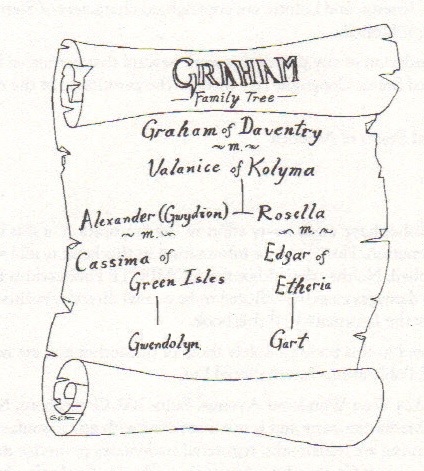 GRAHAM
Family Tree
Graham of Daventry
~ m. ~
Valanice of Kolyma
Alexander (Gwydion) Rosella
~ m. ~ ~ m. ~
Cassima of Green Isles
Edgar of Etheria
Gwendolyn Gart